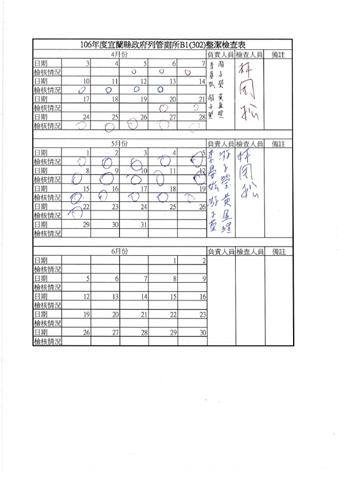 106年度宜蘭縣政府列管廁所B1(302)整潔檢查表
4月份 負責人員 檢查人員 備註
日期 3 4 5 6 7
檢核情況
日期 10 11 12 13 14
檢核情況
日期 17 18 19 20 21
檢核情況
日期 24 25 26 27 28
檢核情況
5月份 負責人員 檢查人員 備註
日期 1 2 3 4 5
檢核情況
日期 8 9 10 11 12
檢核情況
日期 15 16 17 18 19
檢核情況
日期 22 23 24 25 26
檢核情況
日期 29 30 31
檢核情況
6月份 負責人員 檢查人員 備註
日期 1 2
檢核情況
日期 5 6 7 8 9
檢核情況
日期 12 13 14 15 16
檢核情況
日期 19 20 21 22 23
檢核情況
日期 26 27 28 29 30
檢核情況